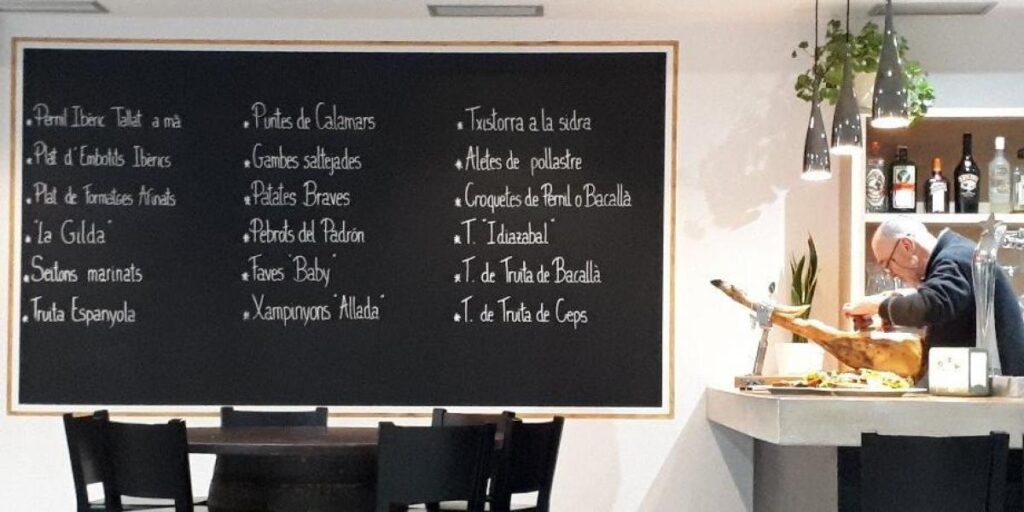 * Pernil Ibèric Tallat a mà
* Plat d'Embotits Ibèrics
* Plat de Formatges Afinats
* "La Gilda"
* Seitons marinats
* Truita Espanyola
* Puntes de Calamars
* Gambes saltejades
* Patates Braves
* Pebrots del Padrón
* Faves "Baby"
* Xampinyons "Allada"
* Txistorra a la sidra
* Aletes de pollastre
* Croquetes de Pernil o Bacallà
* T. "Idiazabal"
* T. de Truita de Bacallà
* T. de Truita de Ceps